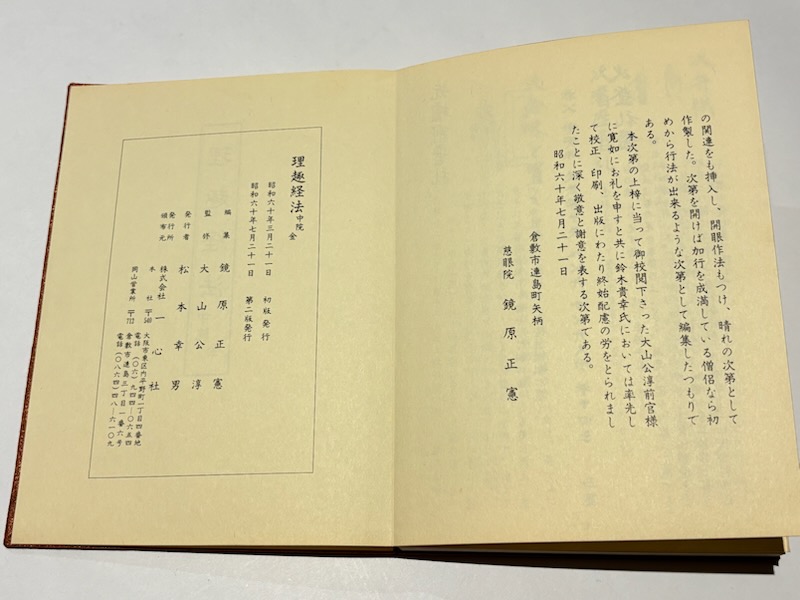 の関連をも挿入し、開眼作法もつけ、晴れの次第として
作製した。次第を開けば加行を成満している僧侶なら初
めから行法が出来るような次第として編集したつもりで
ある。
本次第の上梓に当って御校閲下さった大山公淳前官様
に寛如にお礼を申すと共に鈴木貴幸氏においては率先し
て校正、印刷、出版にわたり終始配慮の労をとられまし
たことに深く敬意と謝意を表する次第である。
昭和六十年七月二十一日
倉敷市連島町矢柄
慈眼院 鏡原正憲
理趣経法中院 全
昭和六十年三月二十一日 初版発行
昭和六十年七月二十一日 第二版発行
編集 鏡原正憲
監修 大山公淳
発行者 松本幸男
発行所
頒布元
株式会社 一心社
本社 〒540 大阪市東区内平野町一丁目四番地
電話(〇六)九四四―〇六五四
岡山営業所 〒712 倉敷市連島三丁目一番六号
電話(〇八六四)四八―六一〇九